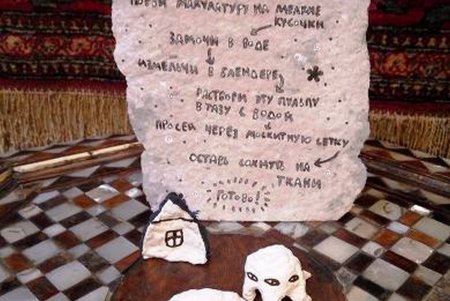 порви макулатуру на мелкие
кусочки
замочи в воде
измельчи в блендере
раствори эту пульпу
в тазу с водой
просей через москитную сетку
оставь сохнуть на
ткани
готово!